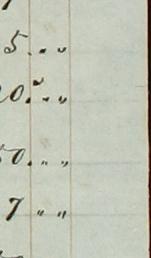 5 " "
0 " "
50 " "
7 " "